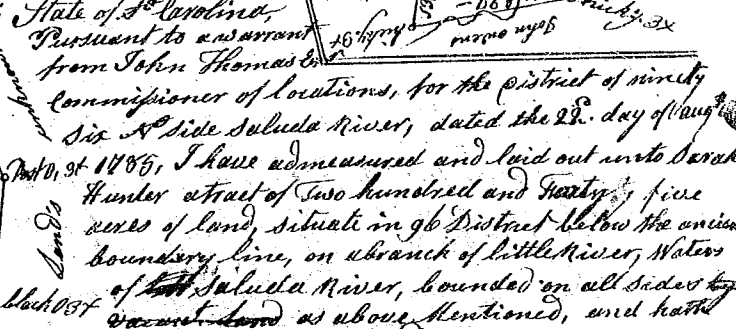 State of So Carolina,
Pursuant to a warrant
from John Thomas Esr
Commissioner of locations, for the District of ninety
six No side Saluda River, dated the 22d. day of augt
1785, I have admeasured and laid out unto Sarah
Hunter a tract of Two hundred and Forty, five
acres of land, situate in 96 District below the ancient
boundary line, on a branch of little River, Waters
of Saluda River, bounded on all sides by
vacant Land as above Mentioned, and hath
John owens
unknown
Land's
Post O, 3t
black O 3x